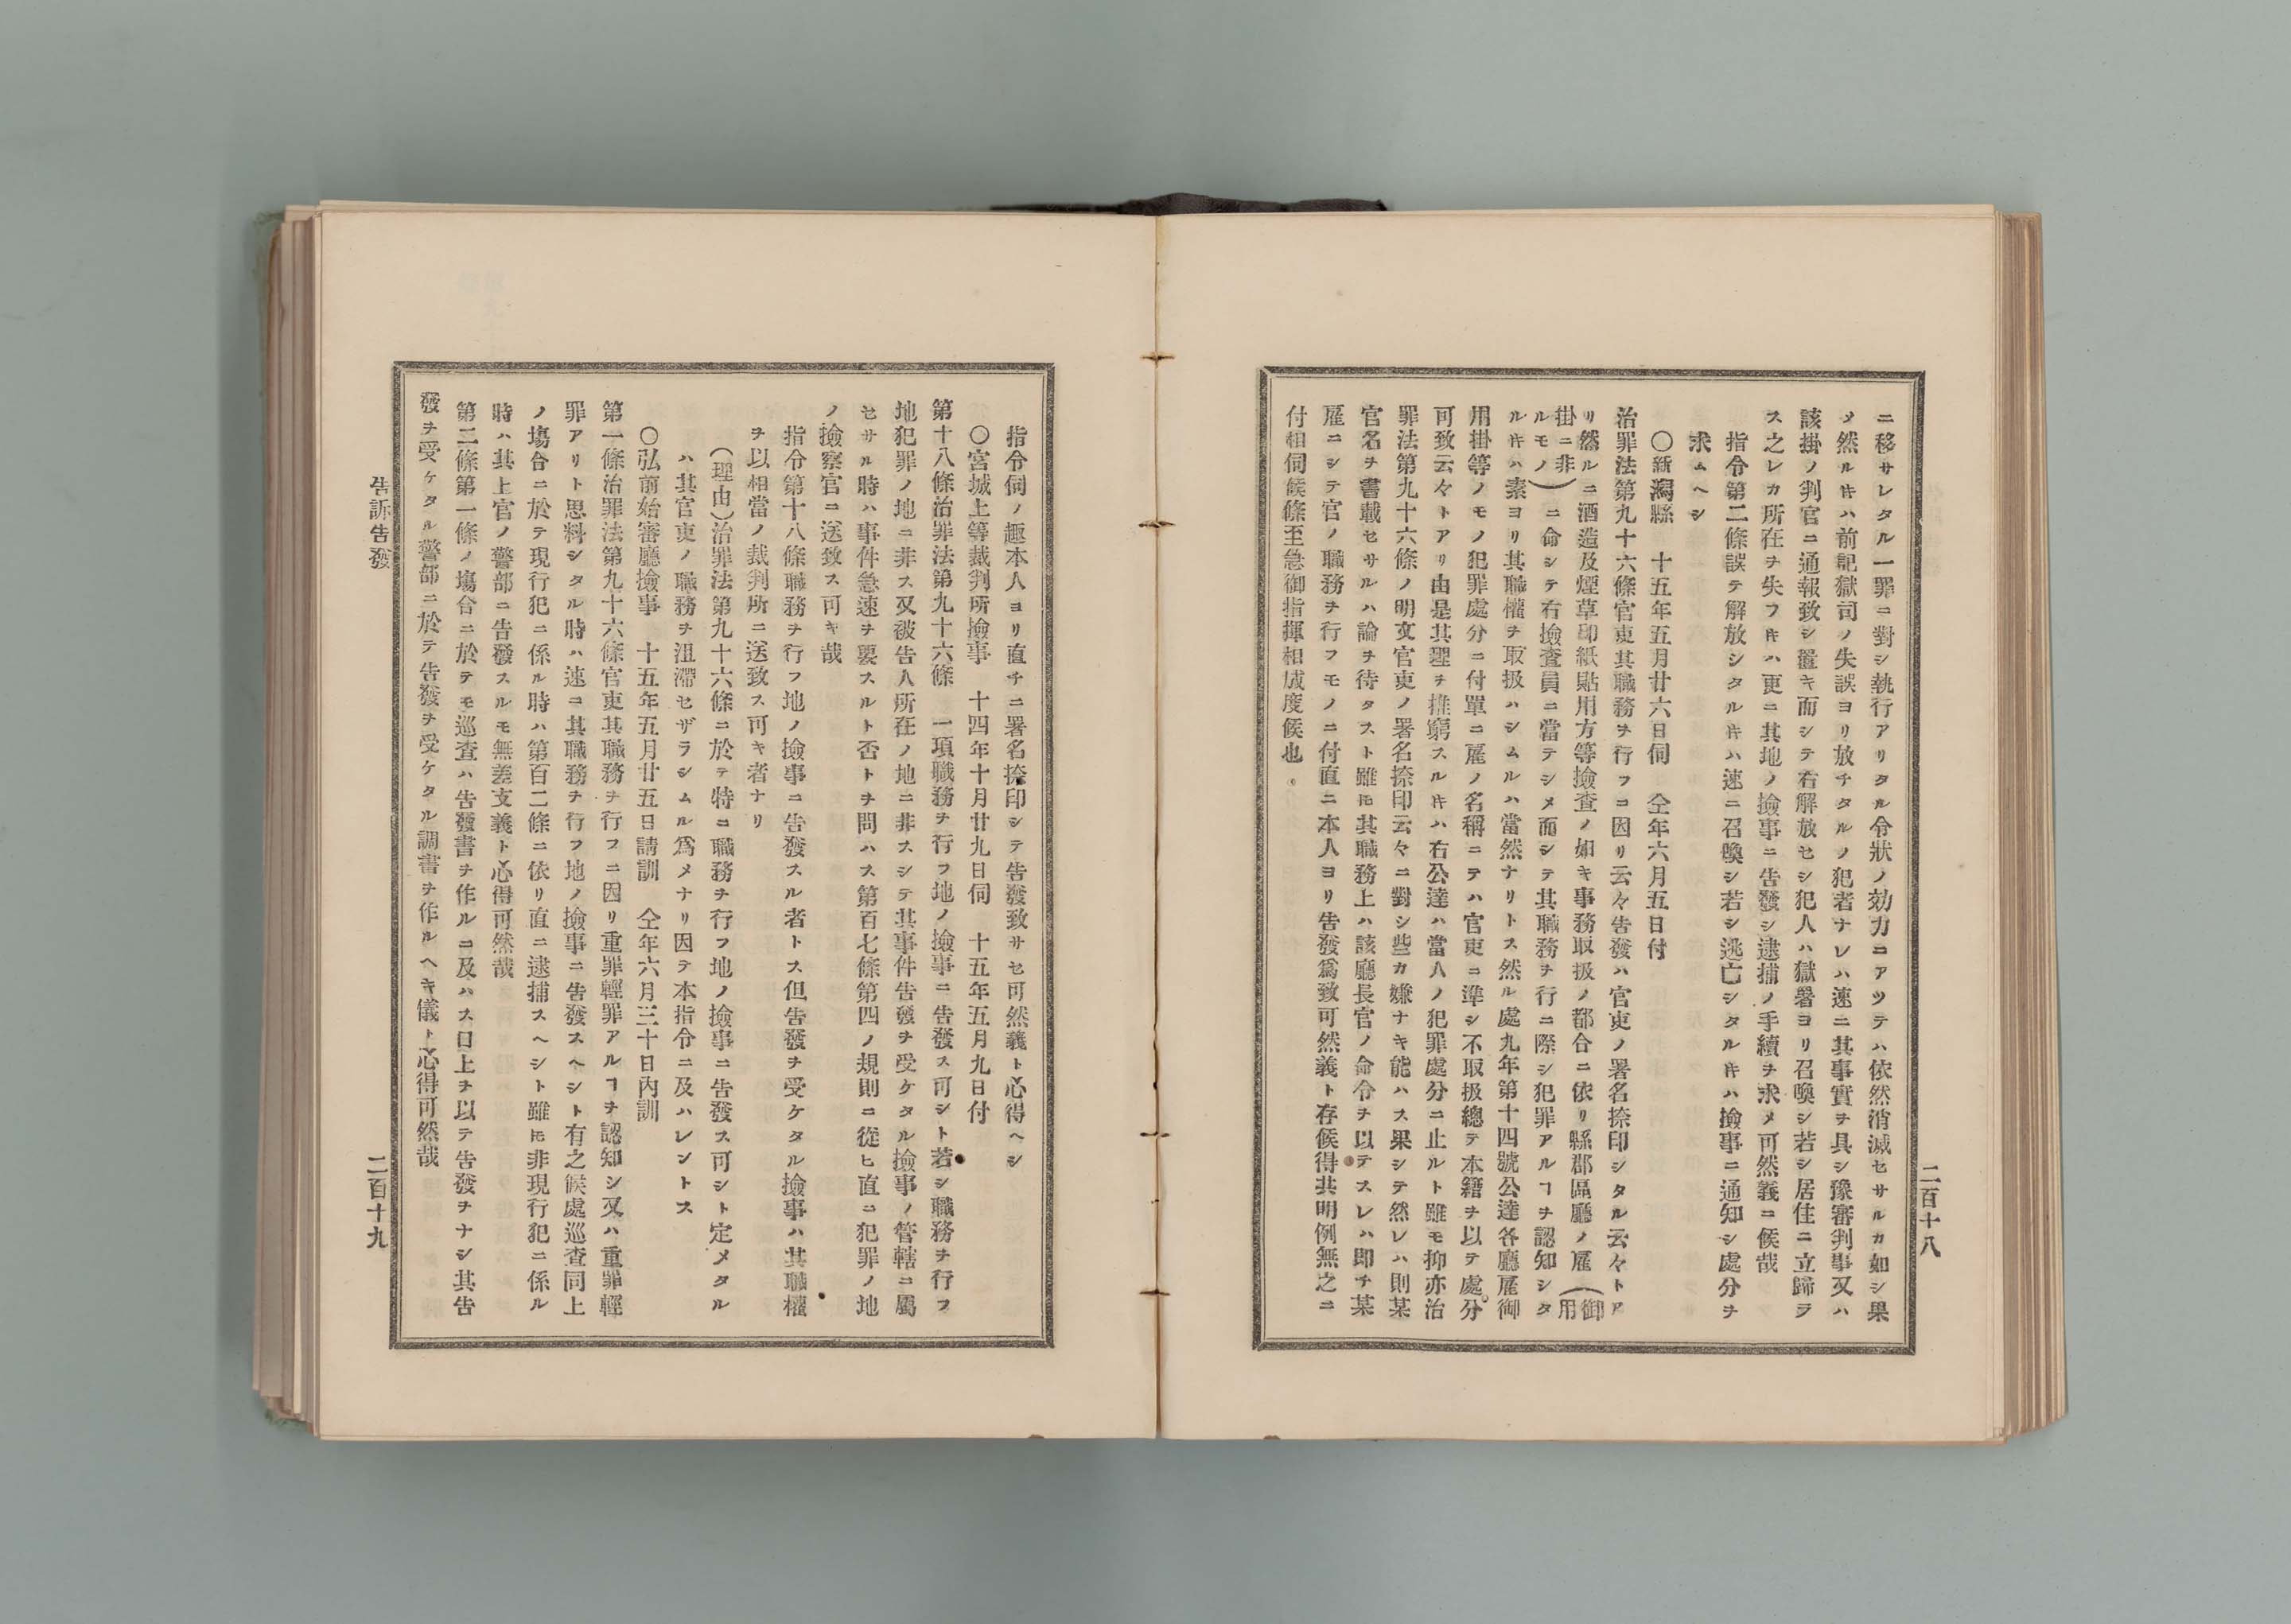 二百十八
ニ移サレタル一罪ニ對シ執行アリタル令狀ノ効力ニアツテハ依然消滅セサルカ如シ果
ソ然ルキハ前記獄司ノ失誤ヨリ放チタルノ犯者ナレハ速ニ其事實ヲ具シ豫審判事又ハ
該掛ノ判官ニ通報致シ置キ而シテ右解放セシ犯人ハ獄署ヨリ召喚シ若シ居住ニ立歸ラ
ス之レカ所在ヲ失フキハ更ニ其地ノ撿事ニ告發シ逮捕ノ手續ヲ求メ可然義ニ候哉
指令第二條誤テ解放シタルキハ速ニ召喚シ若シ逃亡シタルキハ撿事ニ通知シ處分ヲ
求ムヘシ
〇新潟縣 十五年五月廿六日伺 仝年六月五日付
治罪法第九十六條官吏其職務ヲ行フニ因リ云々告發ハ官吏ノ署名捺印シタル云々トア
リ然ルニ酒造及煙草印紙貼用方等撿査ノ如キ事務取扱ノ都合ニ依リ縣郡區廳ノ雇(御用
掛ニ非ルモノ)ニ命シテ右撿査員ニ當テシメ而シテ其職務ヲ行ニ際シ犯罪アルヿヲ認知シタ
ルキハ素ヨリ其職權ヲ取扱ハシムルハ當然ナリトス然ル處九年第十四號公達各廳雇御
用掛等ノモノ犯罪處分ニ付單ニ雇ノ名稱ニテハ官吏ニ準シ不取扱總テ本籍ヲ以テ處分
可致云々トアリ由是其理ヲ推窮スルキハ右公達ハ當人ノ犯罪處分ニ止ルト雖モ抑亦治
罪法第九十六條ノ明文官吏ノ署名捺印云々ニ對シ些カ嫌ナキ能ハス果シテ然レハ則某
官名ヲ書載セサルハ論ヲ待タスト雖モ其職務上ハ該廳長官ノ命令ヲ以テスレハ即チ某
雇ニシテ官ノ職務ヲ行フモノニ付直ニ本人ヨリ告發爲致可然義ト存候得共明例無之ニ
付相伺候條至急御指揮相成度候也。
指令伺ノ趣本人ヨリ直チニ署名捺印シテ告發致サセ可然義ト心得ヘシ
〇宮城上等裁判所撿事 十四年十月廿九日伺 十五年五月九日付
第十八條治罪法第九十六條 一項職務ヲ行フ地ノ撿事ニ告發ス可シト若シ職務ヲ行フ
地犯罪ノ地ニ非ス又被告人所在ノ地ニ非スシテ其事件告發ヲ受ケタル撿事ノ管轄ニ屬
セサル時ハ事件急速ヲ要スルト否トヲ問ハス第百七條第四ノ規則ニ從ヒ直ニ犯罪ノ地
ノ撿察官ニ送致ス可キ哉
指令第十八條職務ヲ行フ地ノ撿事ニ告發スル者トス但告發ヲ受ケタル撿事ハ其職權
ヲ以相當ノ裁判所ニ送致ス可キ者ナリ
(理由)治罪法第九十六條ニ於テ特ニ職務ヲ行フ地ノ撿事ニ告發ス可シト定メタル
ハ其官吏ノ職務ヲ沮滯セザラシムル爲メナリ因テ本指令ニ及ハレントス
〇弘前始審廳撿事 十五年五月廿五日請訓 仝年六月三十日內訓
第一條治罪法第九十六條官吏其職務ヲ行フニ因リ重罪輕罪アルヿヲ認知シ又ハ重罪輕
罪アリト思料シタル時ハ速ニ其職務ヲ行フ地ノ撿事ニ告發スヘシト有之候處巡查同上
ノ塲合ニ於テ現行犯ニ係ル時ハ第百二條ニ依リ直ニ逮捕スヘシト雖モ非現行犯ニ係ル
時ハ其上官ノ警部ニ告發スルモ無差支義ト心得可然哉
第二條第一條ノ塲合ニ於テモ巡查ハ告發書ヲ作ルニ及ハス口上ヲ以テ告發ヲナシ其告
發ヲ受ケタル警部ニ於テ告發ヲ受ケタル調書ヲ作ルヘキ儀ト心得可然哉
告訴告發
二百十九